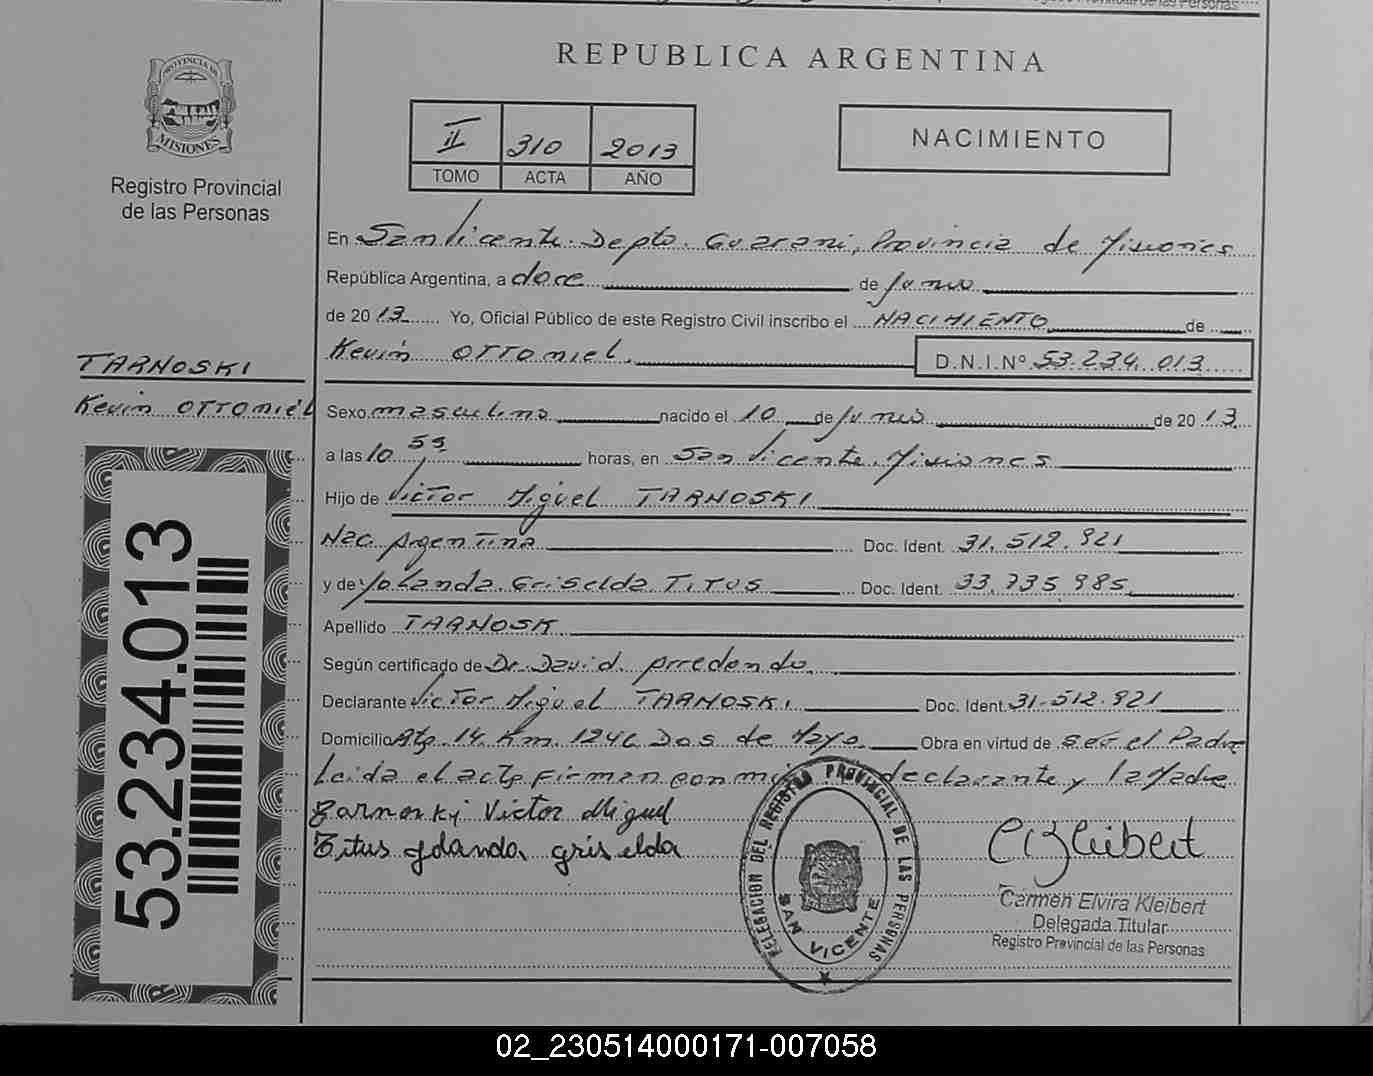 REPUBLICA ARGENTINA
PROVINCIA DE
MISIONES
Registro Provincial
de las Personas
II 310 2013
TOMO ACTA AÑO
NACIMIENTO
En San Vicente. Depto. Guarani, Provincia de Misiones
República Argentina, a doce de Junio
de 2013 Yo, Oficial Público de este Registro Civil inscribo el NACIMIENTO de
Kevin OTTOMIEL. D.N.I.Nº 53.234.013
TARNOSKI
Kevin OTTOMIEL
Sexo masculino nacido el 10 de Junio de 2013
a las 10 55 horas, en San Vicente. Misiones
Hijo de Victor Miguel TARNOSKI
Nac. Argentina Doc. Ident. 31.512.921
y de Yolanda Griselda TITUS Doc. Ident. 33.735.985
Apellido TARNOSK
Según certificado de Dr. David Arredondo.
Declarante Victor Miguel TARNOSKI Doc. Ident. 31-512.921
Domicilio Rta. 14. Km. 1246 Dos de Mayo. Obra en virtud de ser el Padre
Leida el acta firman conmigo declarante y la Madre
Tarnoski Victor Miguel
Titus Yolanda griselda
53.234.013
DELEGACION DEL REGISTRO PROVINCIAL DE LAS PERSONAS
SAN VICENTE
CKleibert
Carmen Elvira Kleibert
Delegada Titular
Registro Provincial de las Personas
02_230514000171-007058